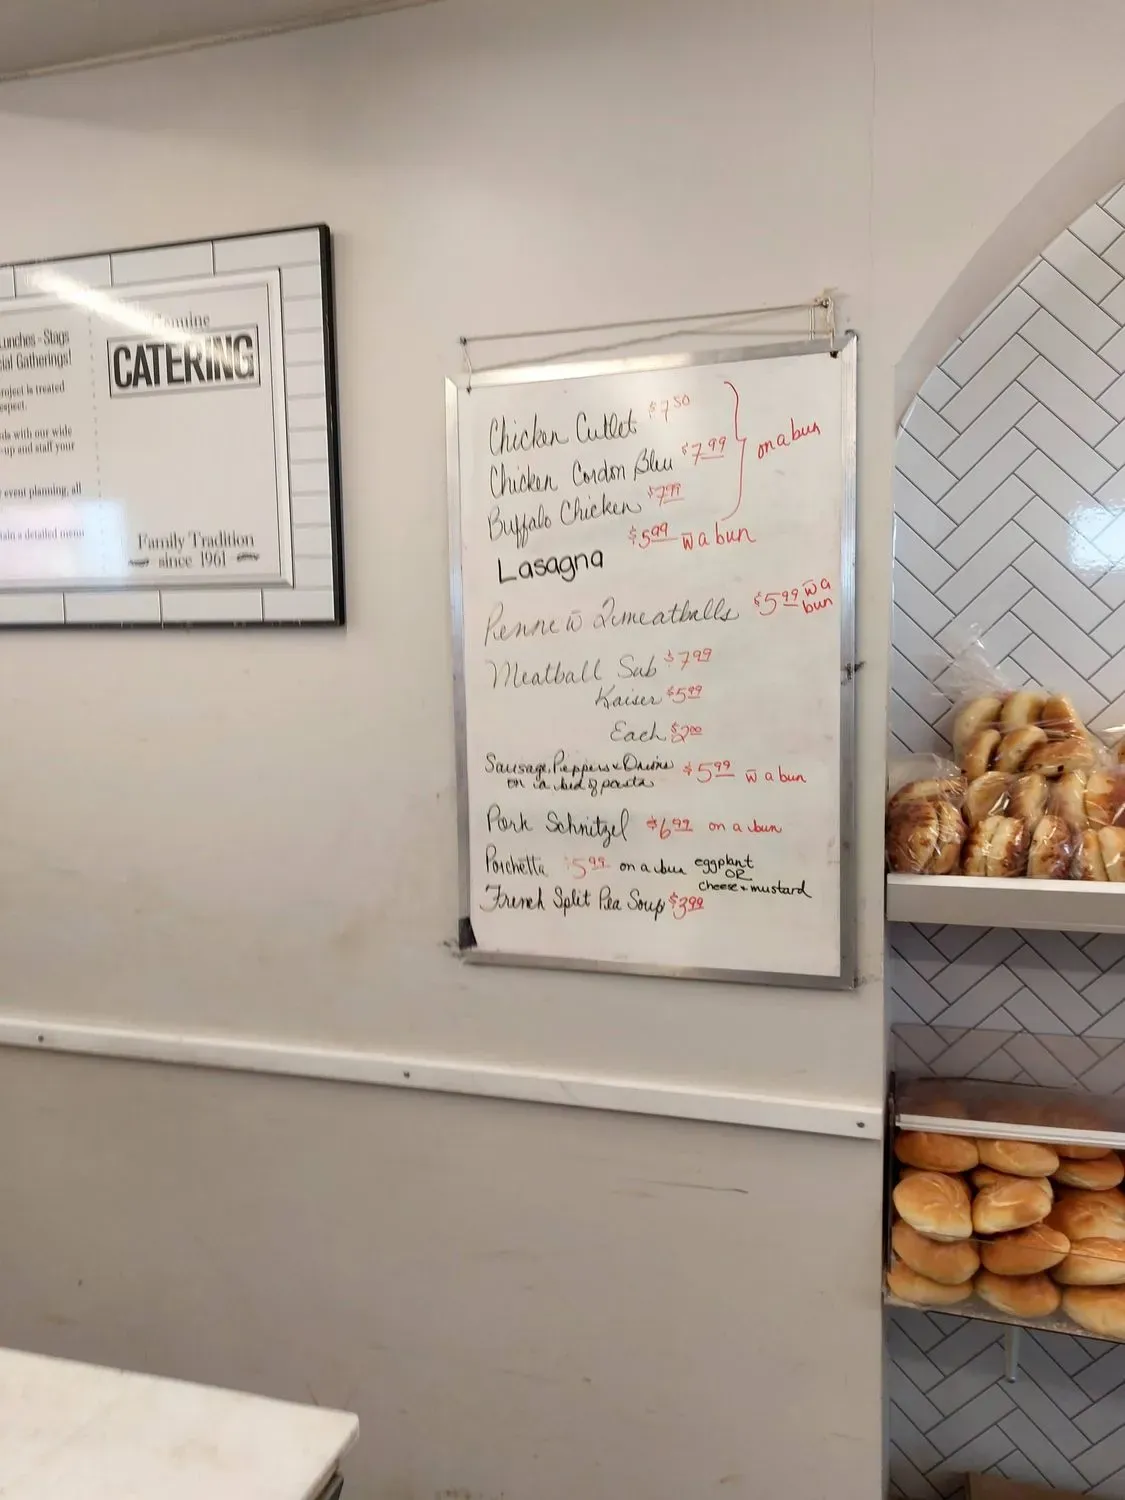 Lunches - Stags
ial Gatherings!
roject is treated
espect.
ds with our wide
-up and staff your
event planning, all
tain a detailed menu
Genuine
CATERING
Family Tradition
since 1961
Chicken Cutlet $7.50
Chicken Cordon Bleu $7.99
Buffalo Chicken $7.99
on a bun
Lasagna $5.99 w̄ a bun
Penne w̄ 2 meatballs $5.99 w̄ a
bun
Meatball Sub $7.99
Kaiser $5.99
Each $2.00
Sausage, Peppers & Onions
on a bed of pasta $5.99 w̄ a bun
Pork Schnitzel $6.99 on a bun
Porchetta $5.99 on a bun eggplant
OR
cheese + mustard
French Split Pea Soup $3.99